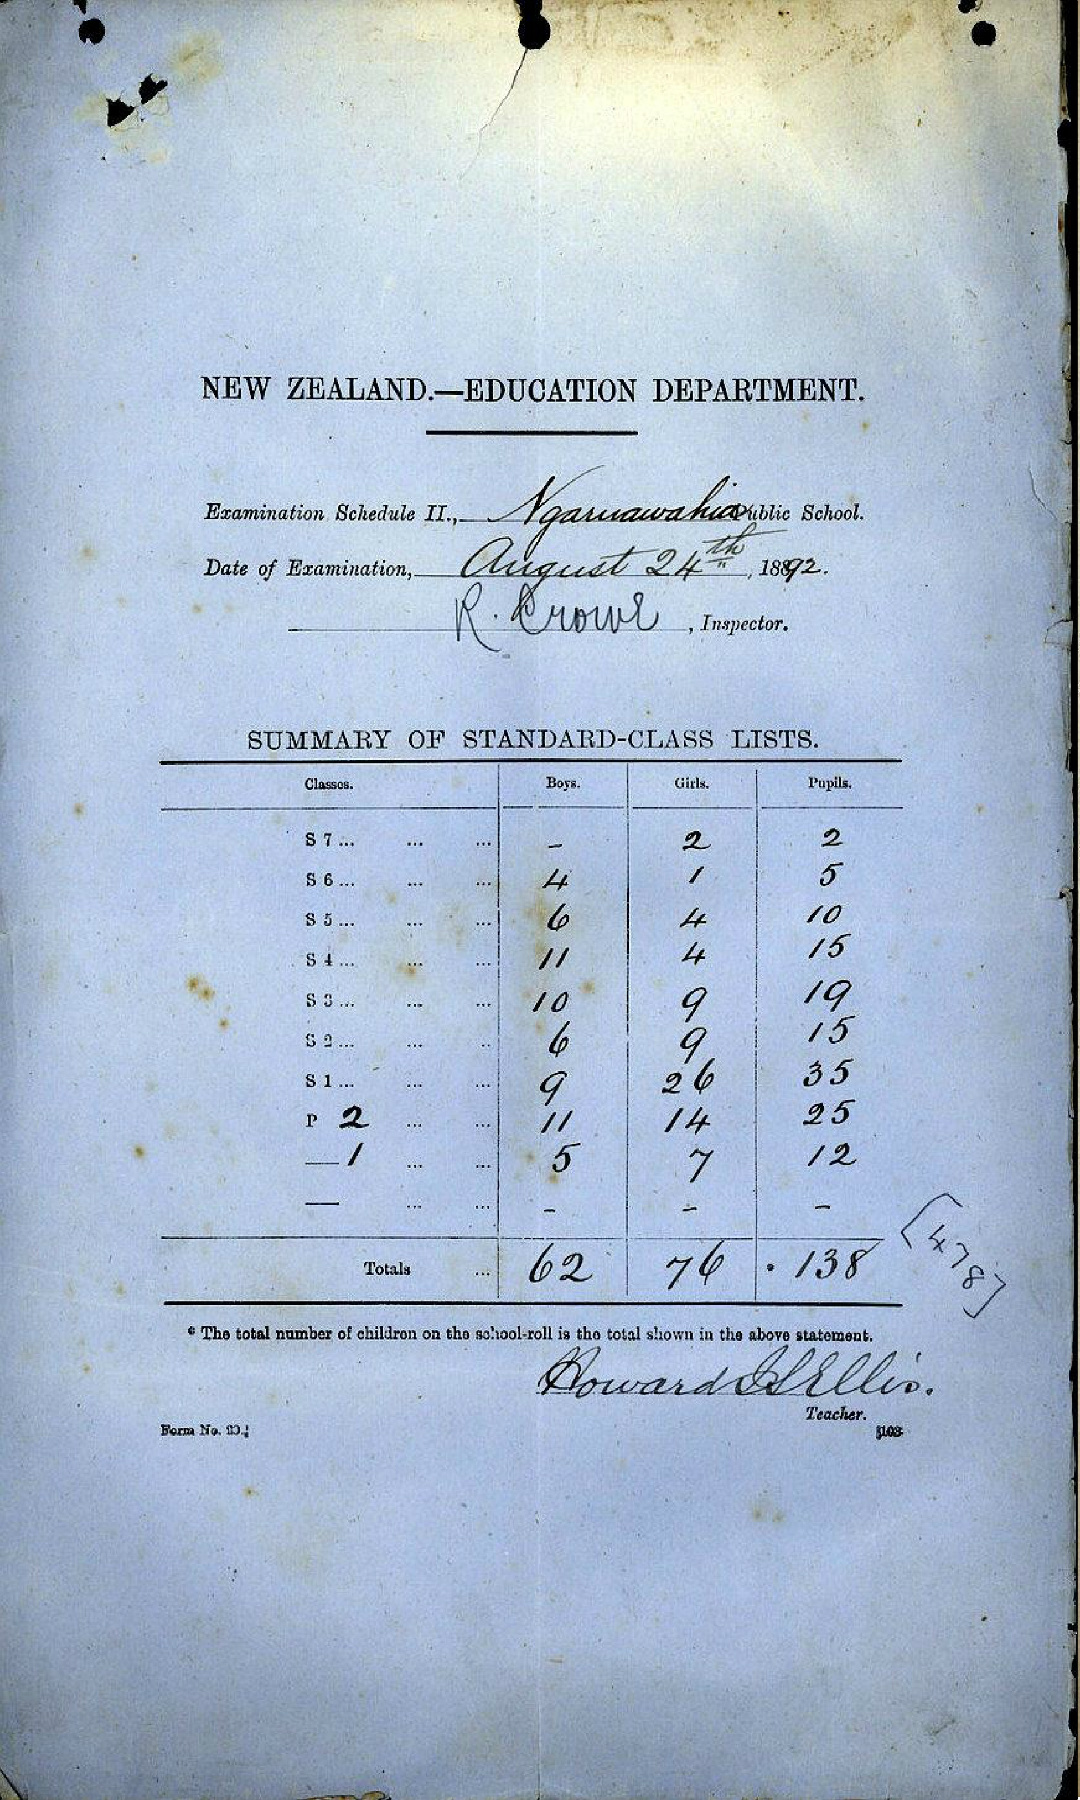 NEW ZEALAND.—EDUCATION DEPARTMENT.
Examination Schedule II., Ngaruawahia Public School.
Date of Examination, August 24th, 1892.
R. Crowe, Inspector.
SUMMARY OF STANDARD-CLASS LISTS.
Classes. Boys. Girls. Pupils.
S 7... ... ... – 2 2
S 6... ... ... 4 1 5
S 5... ... ... 6 4 10
S 4... ... ... 11 4 15
S 3... ... ... 10 9 19
S 2... ... .. 6 9 15
S 1... ... ... 9 26 35
P 2 ... ... 11 14 25
— 1 ... ... 5 7 12
— ... ... – – –
Totals ... 62 76 138
[478]
* The total number of children on the school-roll is the total shown in the above statement.
Howard Ellis.
Teacher.
Form No.